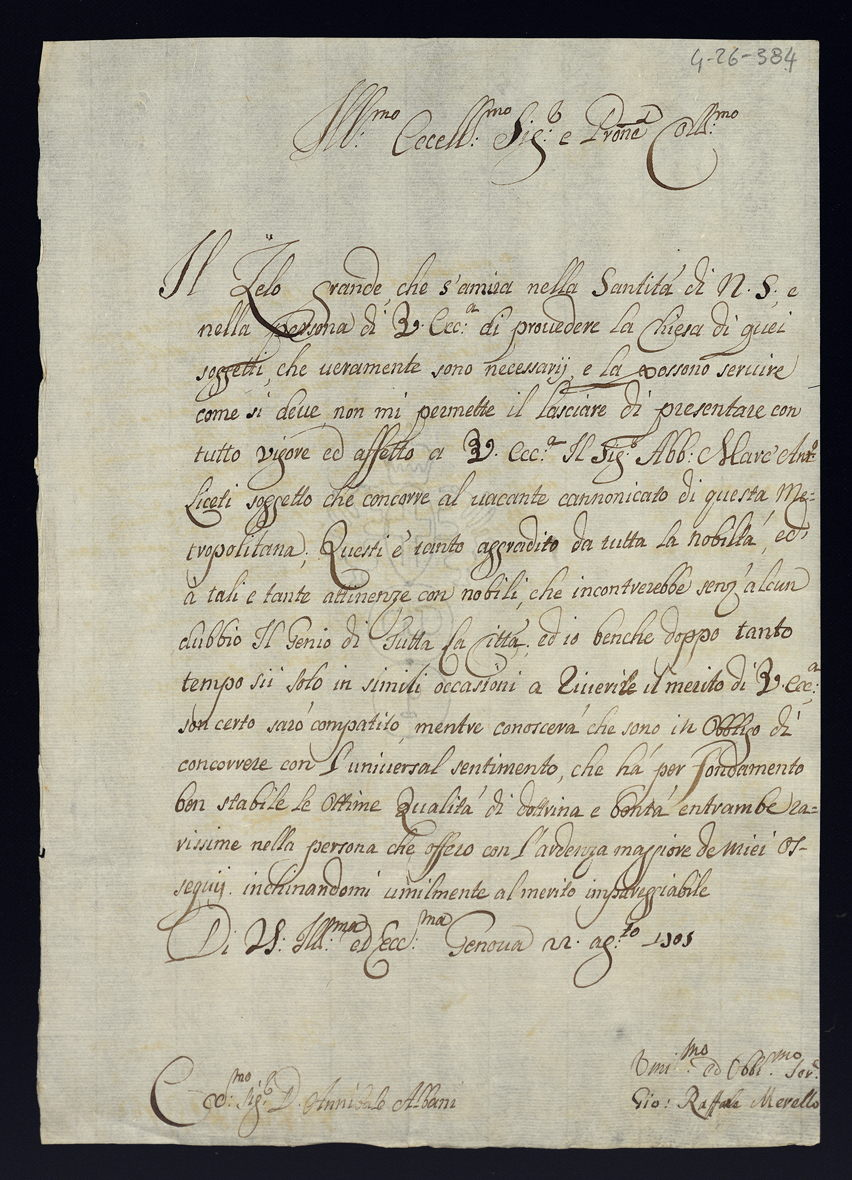 4-26-384
Ill:mo Eccell:mo Sig:r e Prone Coll:mo
Il Zelo grande, che s'amira nella Santità di N. S. e
nella persona di V. Ecc:a di provedere la Chiesa di quei
soggetti, che veramente sono necessarij, e la possono servire
come si deve, non mi permette il lasciare di presentare con
tutto vigore ed affetto a V. Ecc:a Il Sig:r Abb: Marc'Anto
Liceti soggetto che concorre al vacante cannonicato di questa Me-
tropolitana; Questi è tanto aggradito da tutta la nobiltà, ed
à tali e tante attinenze con nobili, che incontrerebbe senz'alcun
dubbio Il Genio di Tutta la Città; ed io benche doppo tanto
tempo sij solo in simili occasioni a riverire il merito di V. Ecc:a
son certo sarò compatito, mentre conoscerà che sono in Obbligo di
concorrere con l'universal sentimento, che hà per fondamento
ben stabile le Ottime Qualità di dottrina e bontà entrambe ra-
rissime nella persona che offero con l'ardenza maggiore de miei Os-
sequij. inchinandomi umilmente al merito impareggiabile
Di V.S: Ill:ma ed Ecc:ma Genova 22. ag:to 1705
Umi:mo ed Obbl:mo Ser:
Ecc:mo Sig:r D. Annibale Albani
Gio: Raffale Merello